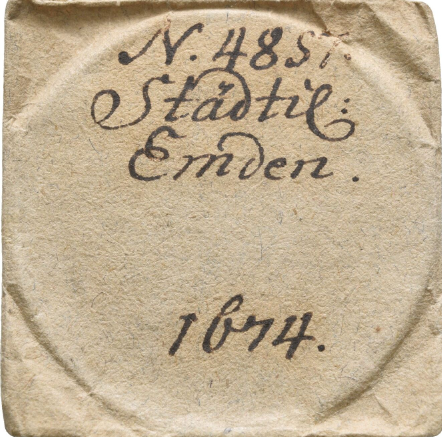 N. 4857.
Städtil:
Emden.
1674.